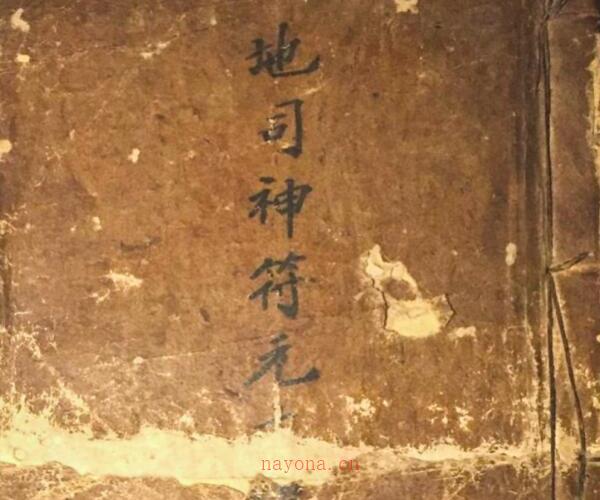 地司神符元
nayona.cn